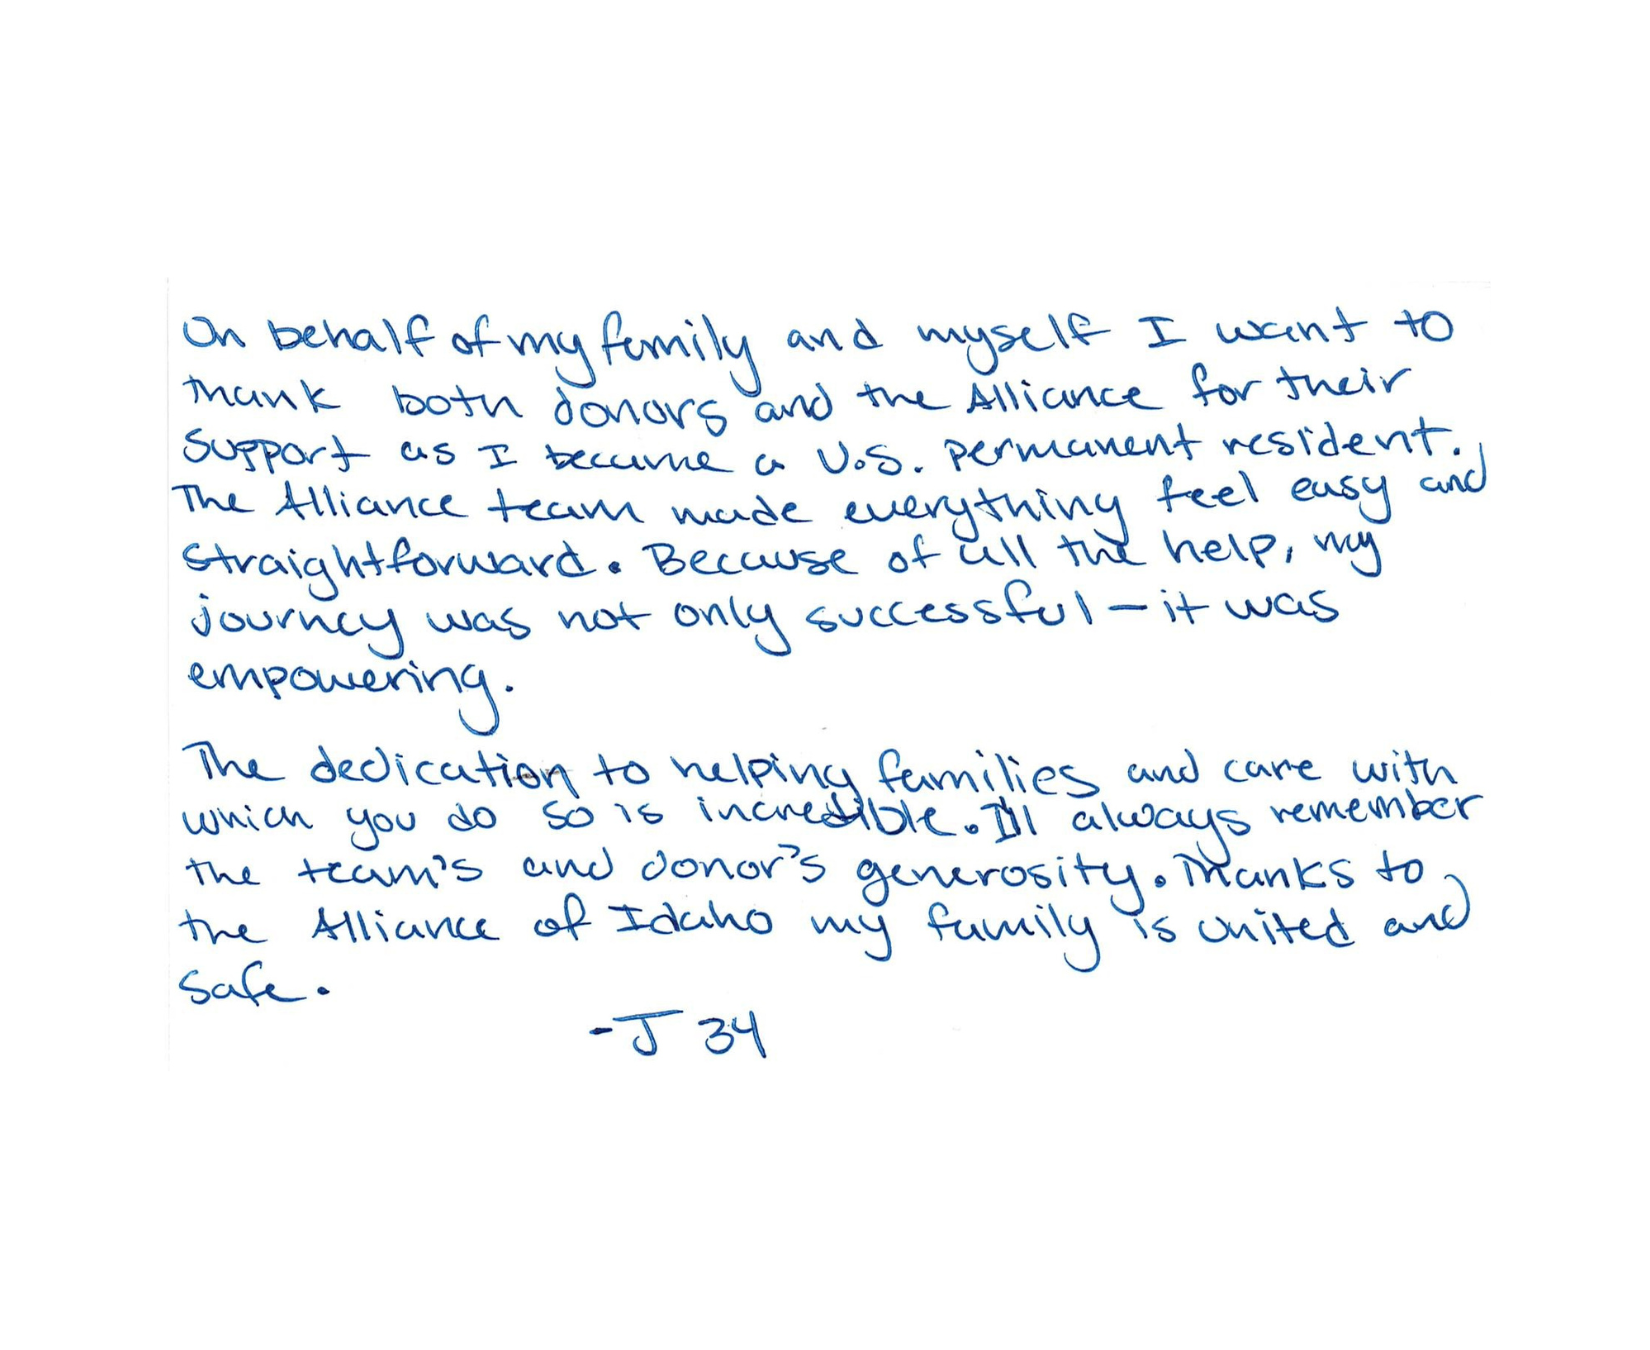 On behalf of my family and myself I want to
thank both donors and the Alliance for their
support as I became a U.S. permanent resident.
The Alliance team made everything feel easy and
straightforward. Because of all the help, my
journey was not only successful — it was
empowering.
The dedication to helping families and care with
which you do so is incredible. I'll always remember
the team's and donor's generosity. Thanks to
the Alliance of Idaho my family is united and
safe.
-J 34